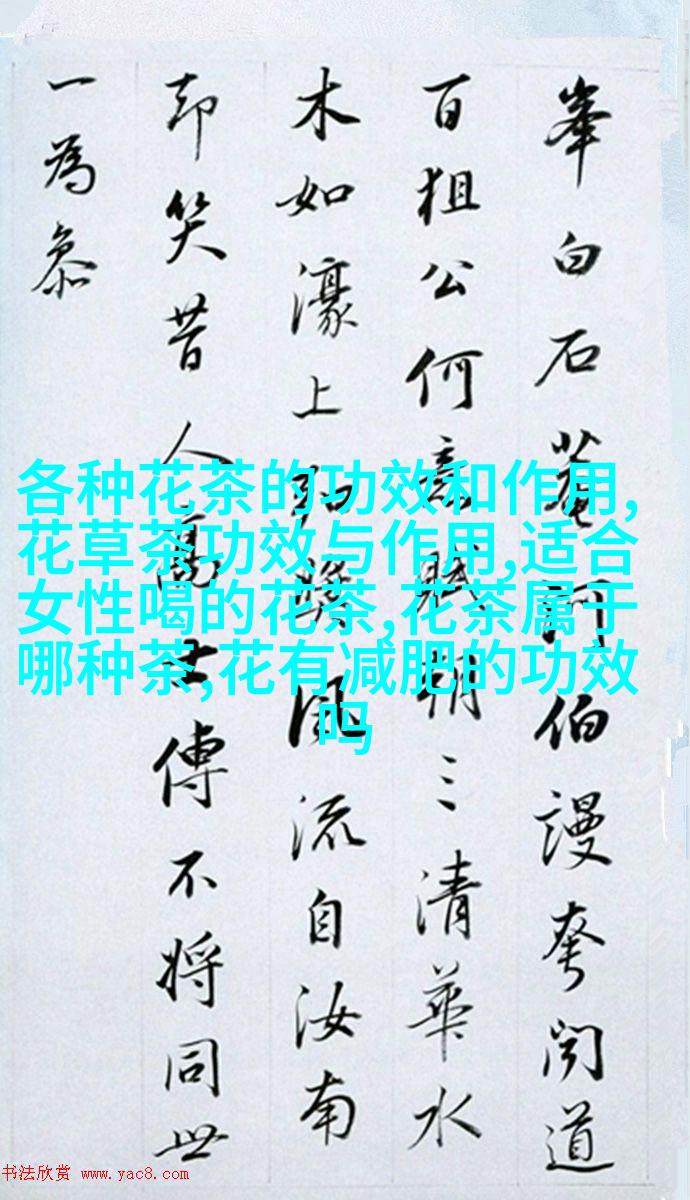 峯白石菴河伯謾夸聞道
百狙公何意賦朝三清華水
木如濠上弘獎風流自汝南
却笑昔人高士傳不將同世
一為叅
各种花茶的功效和作用,
花草茶功效与作用,适合
女性喝的花茶,花茶属于
哪种茶,花有减肥的功效
吗
书法欣赏 www.yac8.com